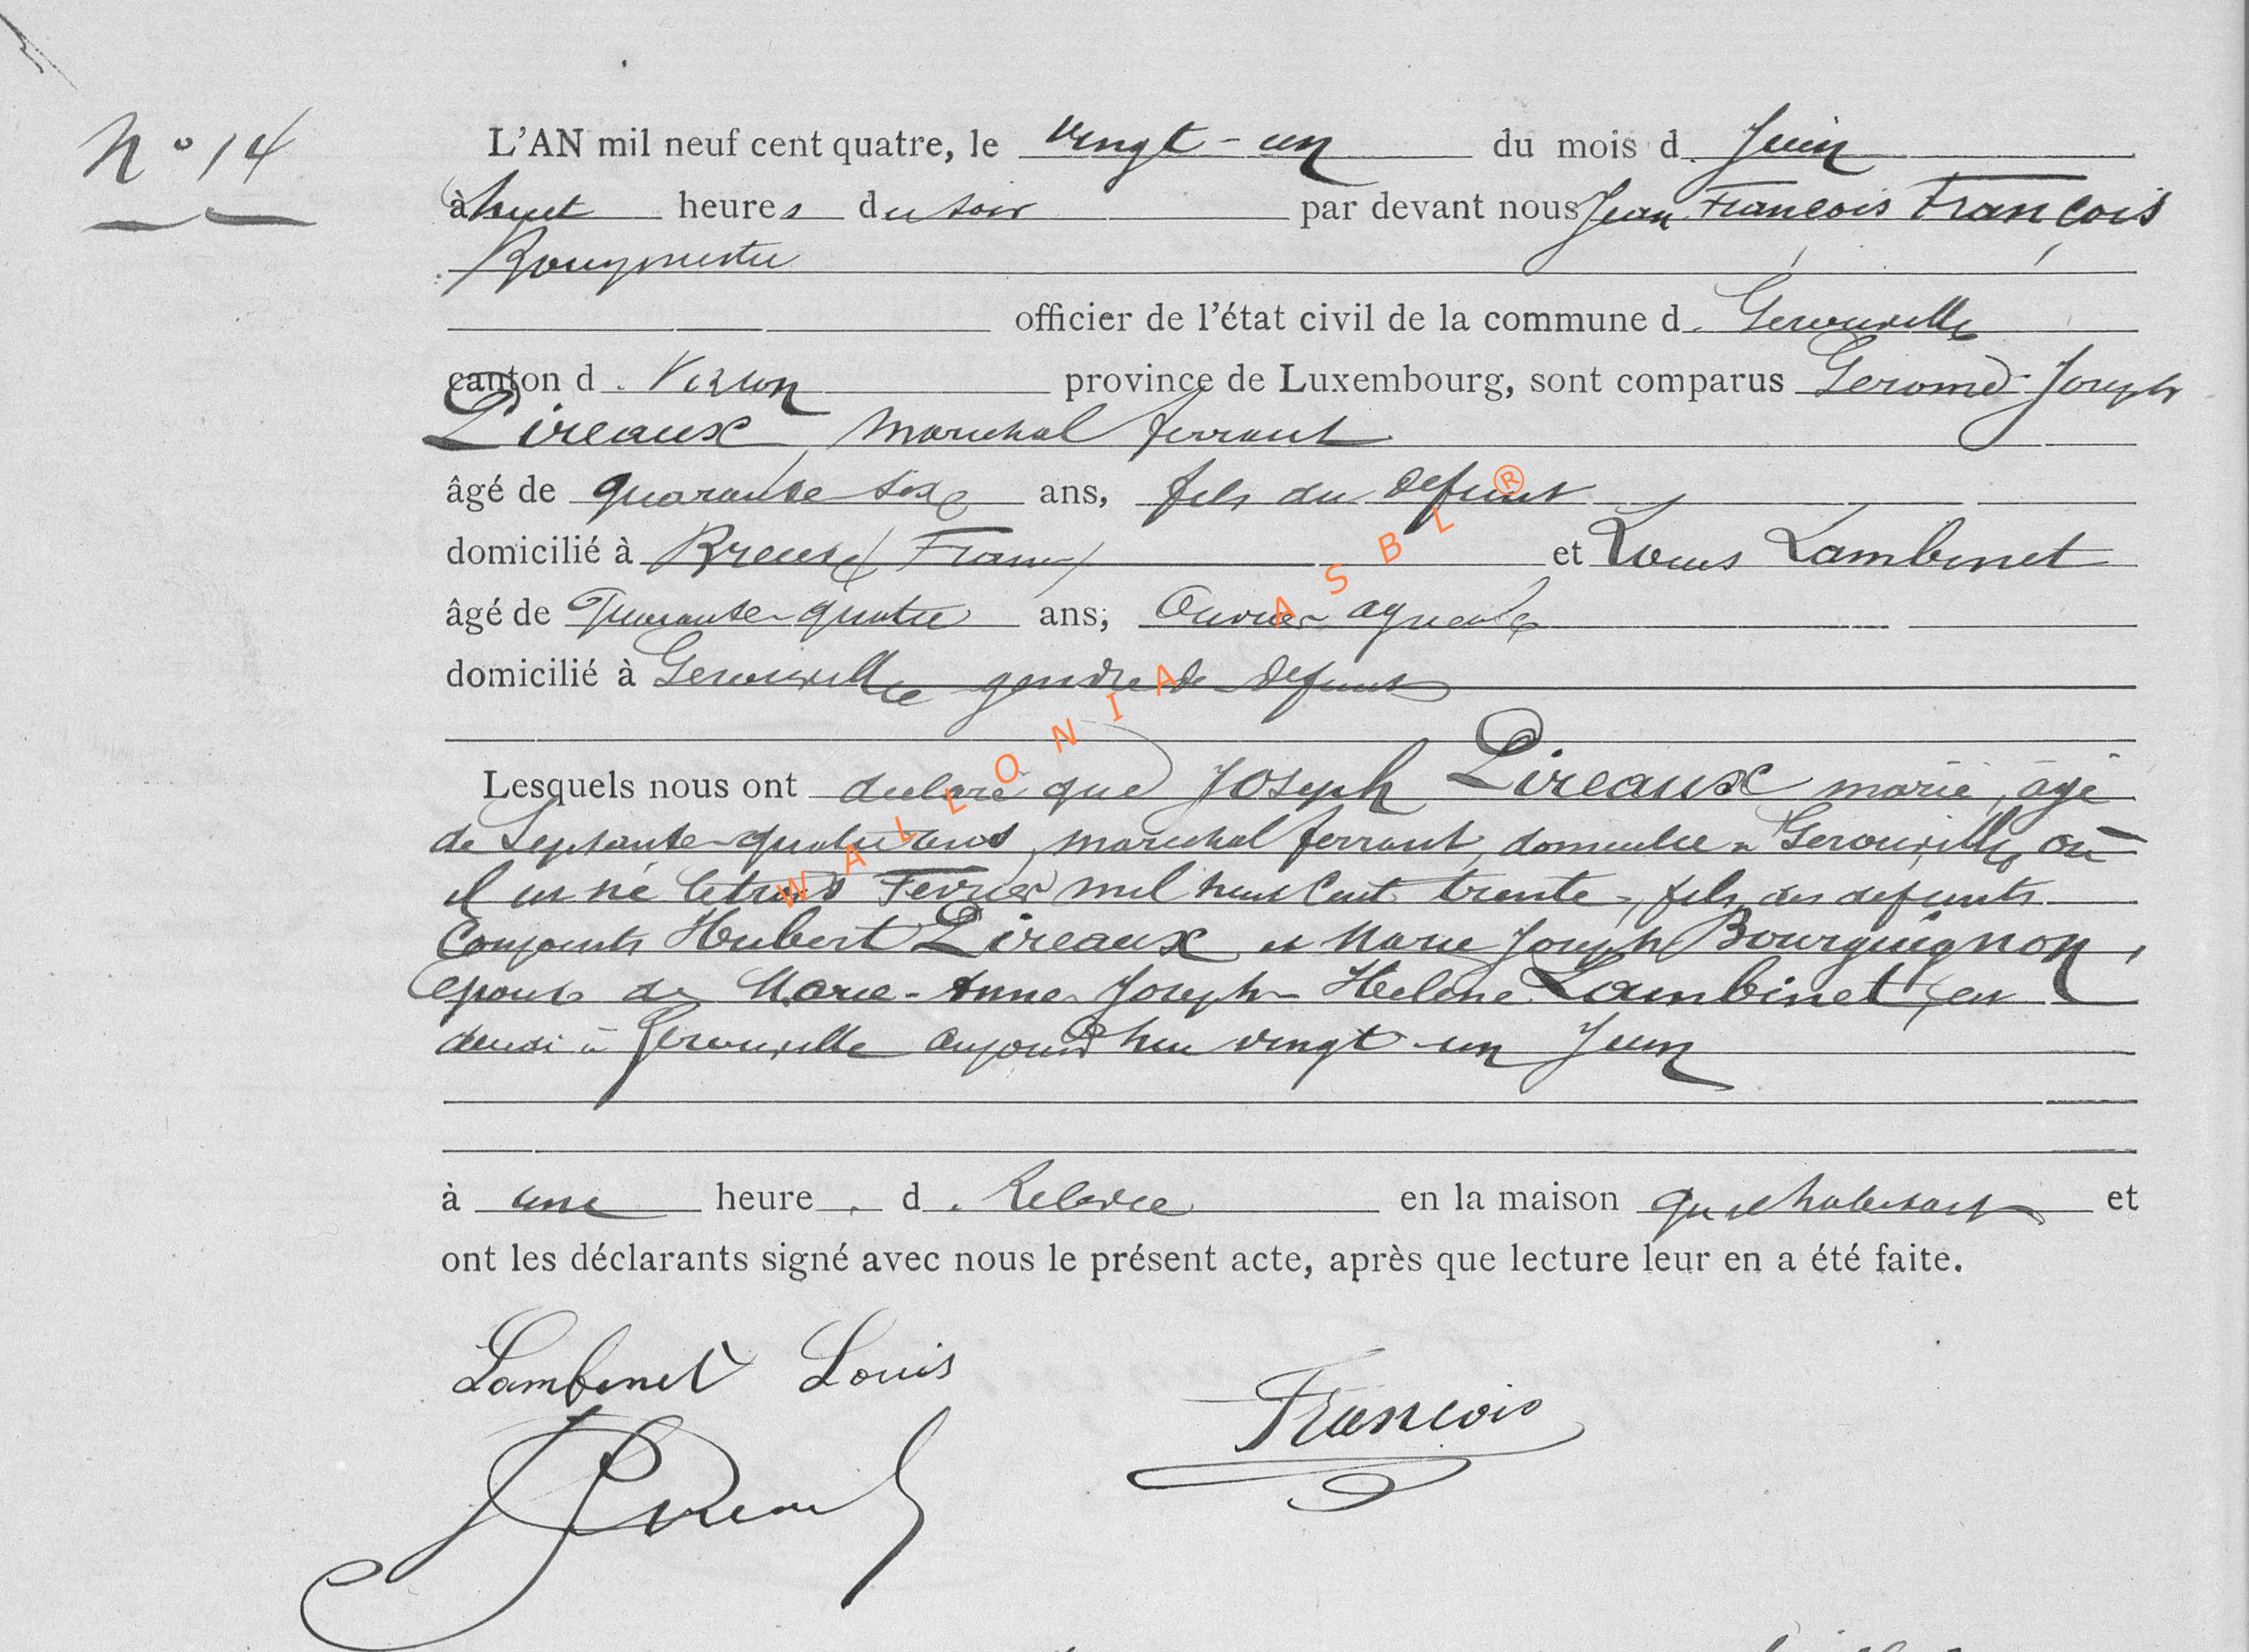 N° 14
L'AN mil neuf cent quatre, le vingt-un du mois d. Juin
à huit heures du soir par devant nous Jean François François
Bourgmestre
officier de l'état civil de la commune d. Gerouville
canton d. Virton province de Luxembourg, sont comparus Gerome Joseph
Pireaux, marechal ferrant
âgé de quarante six ans, fils du defunt
domicilié à (France) et Louis Lambinet
âgé de Quarante-quatre ans, Ouvrier agricole
domicilié à Gerouville gendre de defunt
Lesquels nous ont declaré que Joseph Pireaux marié, âgé
de Septante-quatre ans, marechal ferrant, domicilié a Gerouville, où
il est né le trois Fevrier mil huit Cent trente, fils des defunts
Conjoints Hubert Pireaux et Marie Joseph Bourguignon,
Epoux de Marie-Anne Joseph Helene Lambinet, est
à Gerouville aujourd'hui vingt-un Juin
à une heure d. Relevée en la maison qu'il habitait et
ont les déclarants signé avec nous le présent acte, après que lecture leur en a été faite.
Lambinet Louis
François
WALLONIA ASBL ®